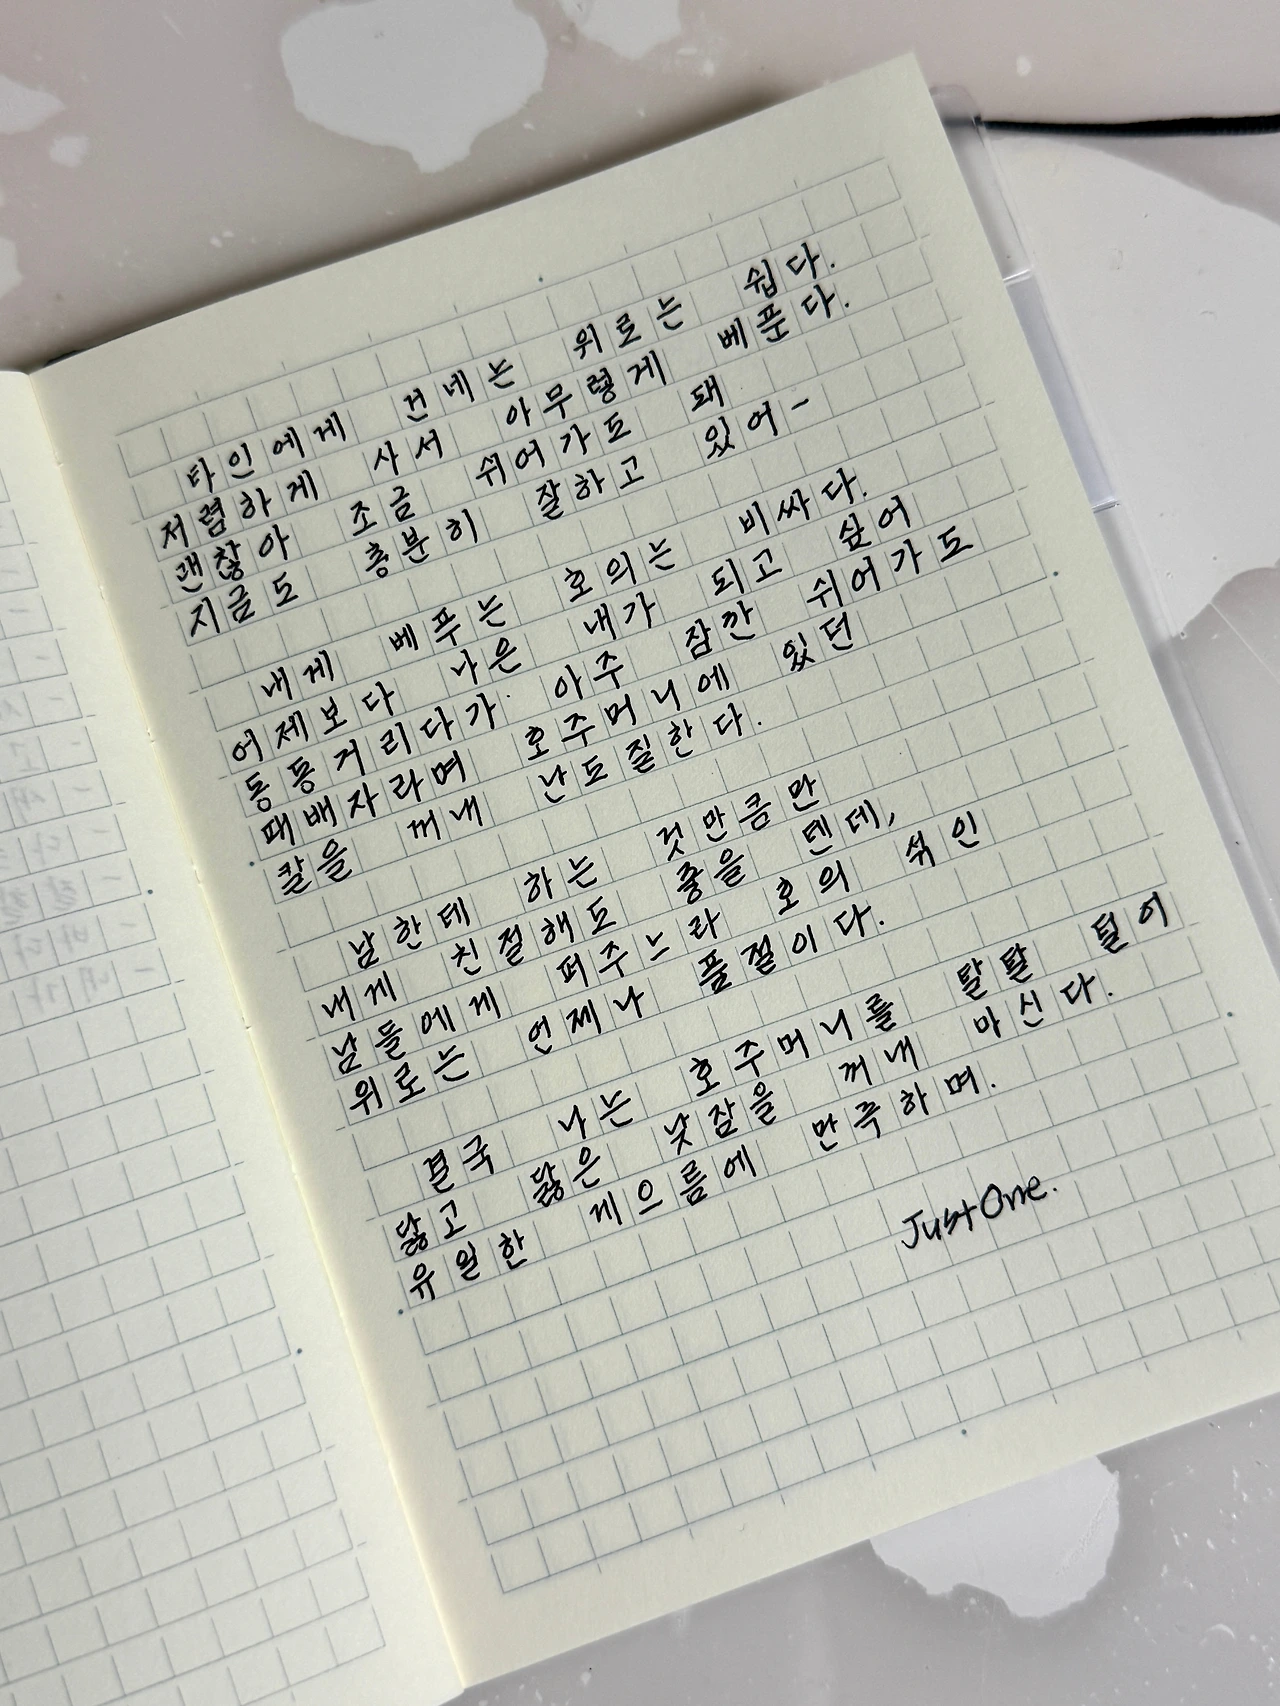 타인에게 건네는 위로는 쉽다.
저렴하게 사서 아무렇게 베푼다.
괜찮아 조금 쉬어가도 돼
지금도 충분히 잘하고 있어-
내게 베푸는 호의는 비싸다.
어제보다 나은 내가 되고 싶어
동동거리다가 아주 잠깐 쉬어가도
패배자라며 호주머니에 있던
칼을 꺼내 난도질한다.
남한테 하는 것만큼만
내게 친절해도 좋을 텐데,
남들에게 퍼주느라 호의 섞인
위로는 언제나 품절이다.
결국 나는 호주머니를 탈탈 털어
닳고 닳은 낮잠을 꺼내 마신다.
유일한 게으름에 만족하며.
Just One.